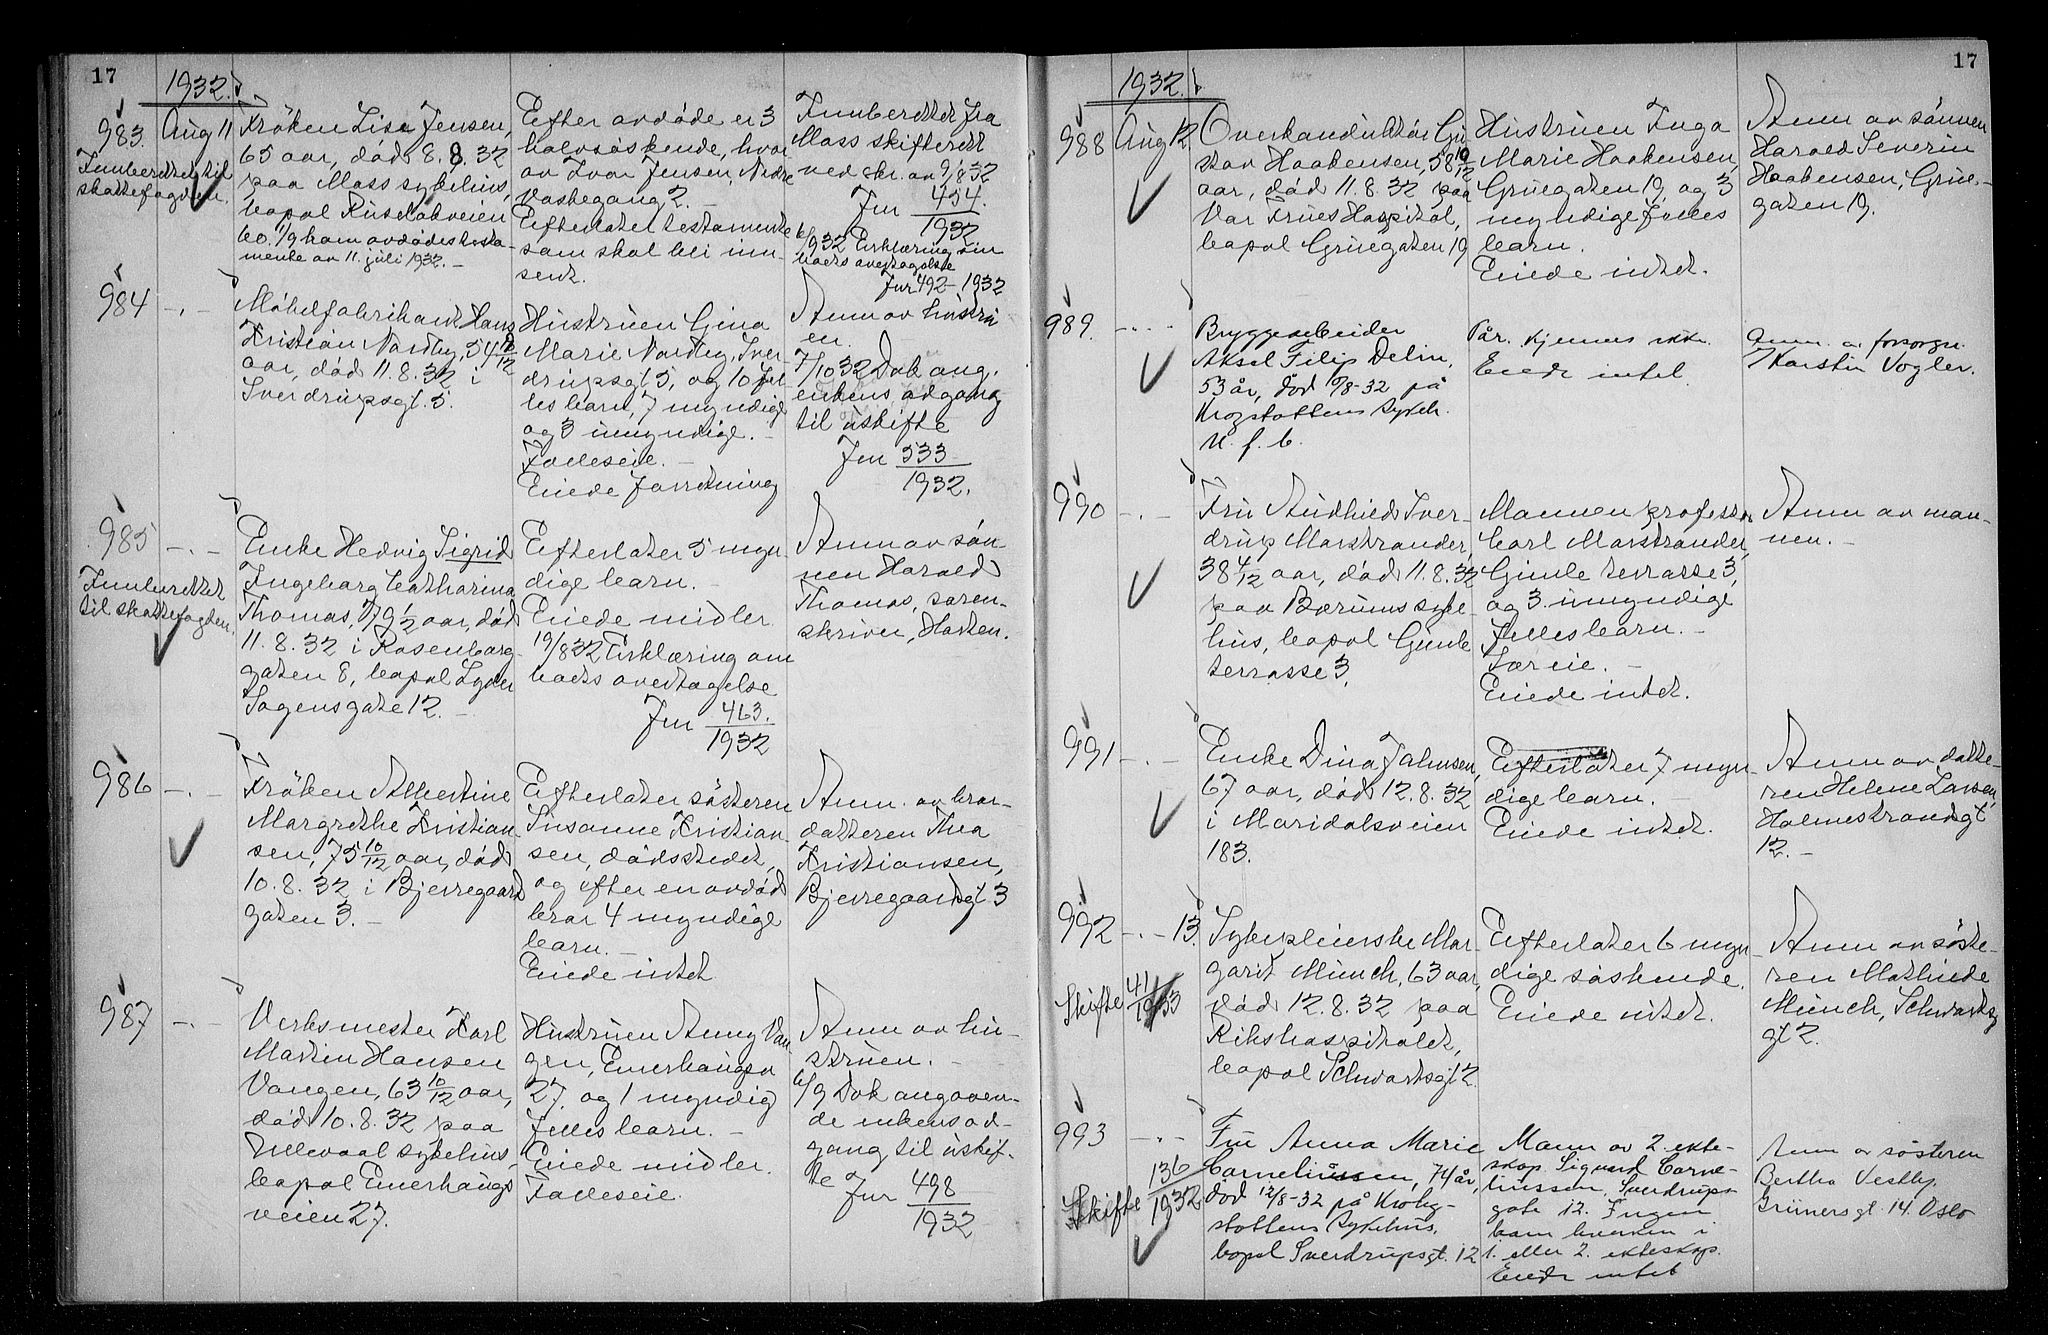 17
1932.
983.
Innberettet til
skattefogden.
Aug 11
Frøken Lise Jensen,
65 aar, død 8.8.32
paa Moss sykehus,
bopal Ruseløkveien
60. 1/9 kom avdødes testa-
mente av 11. juli 1932. -
Efter avdøde er 3
halvsøskende, hvor
av Ivar Jensen, Nedre
Vaskegang 2.
Efterlater testamente
som skal bli inn-
sendt.
Innberettet fra
Moss skifterett
ved skr. av 9/8 32
Jnr 454.
1932
6/9 32 Erklæring om
boets overtagelse
Jnr 492 - 1932
984
- . -
Møbelfabrikant Hans
Kristian Nordby, 54
aar, død 11.8.32 i
Sverdrupsgt. 5.
Hustruen Gina
Marie Nordby, Sver-
drupsgt 5, og 10 fel-
les barn, 7 myndige
og 3 umyndige. -
Felleseie. -
Eiede forretning
Anm av hustru
en.
7/10 32 Dok ang.
enkens adgang
til uskifte
Jnr 533
1932.
985
Innberettet
til skattefogden.
- . -
Enke Hedvig Sigrid
Ingeborg Catharina
Thomas, 79 1/2 aar, død
11.8.32 i Rosenborg-
gaten 8, bopal Lyder
Sagensgate 12. -
Efterlater 5 myn-
dige barn. -
Eiede midler.
19/8 32 Erklæring om
boets overtagelse
Jnr 463.
1932
Anm av søn-
nen Harald
Thomas, soren-
skriver, Horten.
986
- . -
Frøken Albertine
Margrethe Kristian-
sen, 75 10/12 aar, død
10.8.32 i Bjerregaard
gaten 3. -
Efterlater søsteren
Susanne Kristian-
sen, dødsstedet,
og efter en avdød
bror 4 myndige
barn. -
Eiede intet
Anm. av bror-
datteren Thea
Kristiansen,
Bjerregaardsgt 3
987
- . -
Verksmester Karl
Martin Hansen
Vangen, 63 10/12 aar,
død 10.8.32 paa
Ullevaal sykehus,
bopal Enerhaugs
veien 27.
Hustruen Anny Van-
gen, Enerhaugsv
27, og 1 myndig
felles barn. -
Eiede midler.
Felleseie.
Anm av hu-
struen. -
6/9 Dok angaaen-
de enkens ad-
gang til uskif-
te Jnr 498
1932
17
1932.
988
Aug 12
Overkonduktør Gu-
stav Haakensen, 58 10/12
aar, død 11.8.32 paa
Vor Frues Hospital,
bopal Gruegaten 19
Hustruen Inga
Marie Haakensen,
Gruegaten 19, og 3
myndige felles
barn.
Eiede intet.
Anm av sønnen
Harald Severin
Haakensen, Grue-
gaten 19.
989.
- . . -
Bryggearbeider
Aksel Filip Delin,
53 år, død /8-32 på
Krogstøttens sykeh.
U. f. b.
Pår. kjennes ikke.
Eiede intet.
Anm. av forsorgn.
Thorstein Vogler.
990
- . -
Fru Audhild Sver-
drup Marstrander,
38 4/12 aar, død 11.8.32
paa Bærums syke-
hus, bopal Gimle
terrasse 3.
Mannen professor
Carl Marstrander,
Gimle terrasse 3,
og 3 umyndige
felles barn. -
Særeie. -
Eiede intet.
Anm av man-
nen. -
991
- . -
Enke Dina Jahnsen,
67 aar, død 12.8.32
i Maridalsveien
183.
Efterlater 7 myn-
dige barn. -
Eiede intet.
Anm av datte-
ren Helene Larsen,
Holmestrandgt
12. -
992
Skifte 41/1933
- . - 13.
Sykepleierske Mar-
garit Münch, 63 aar,
død 12.8.32 paa
Rikshospitalet,
bopal Schwartsgt 2.
Efterlater 6 myn-
dige søskende.
Eiede intet.
Anm av søste-
ren Mathilde
Münch, Schwartz
gt 2.
993
- . -
Skifte 136
1932
Fru Anna Marie
Corneliussen, 74 år,
død 12/8-32 på Krohg-
støttens sykehus,
bopal Sverdrupsgt. 12
Mann av 2. ekte-
skap Sigurd Corne-
liussen, Sverdrups-
gate 12. Ingen
barn hverken i
1. eller 2. ekteskap.
Eiede intet
Anm av søsteren
Bertha Vestby.
Grünersgt. 14. Oslo